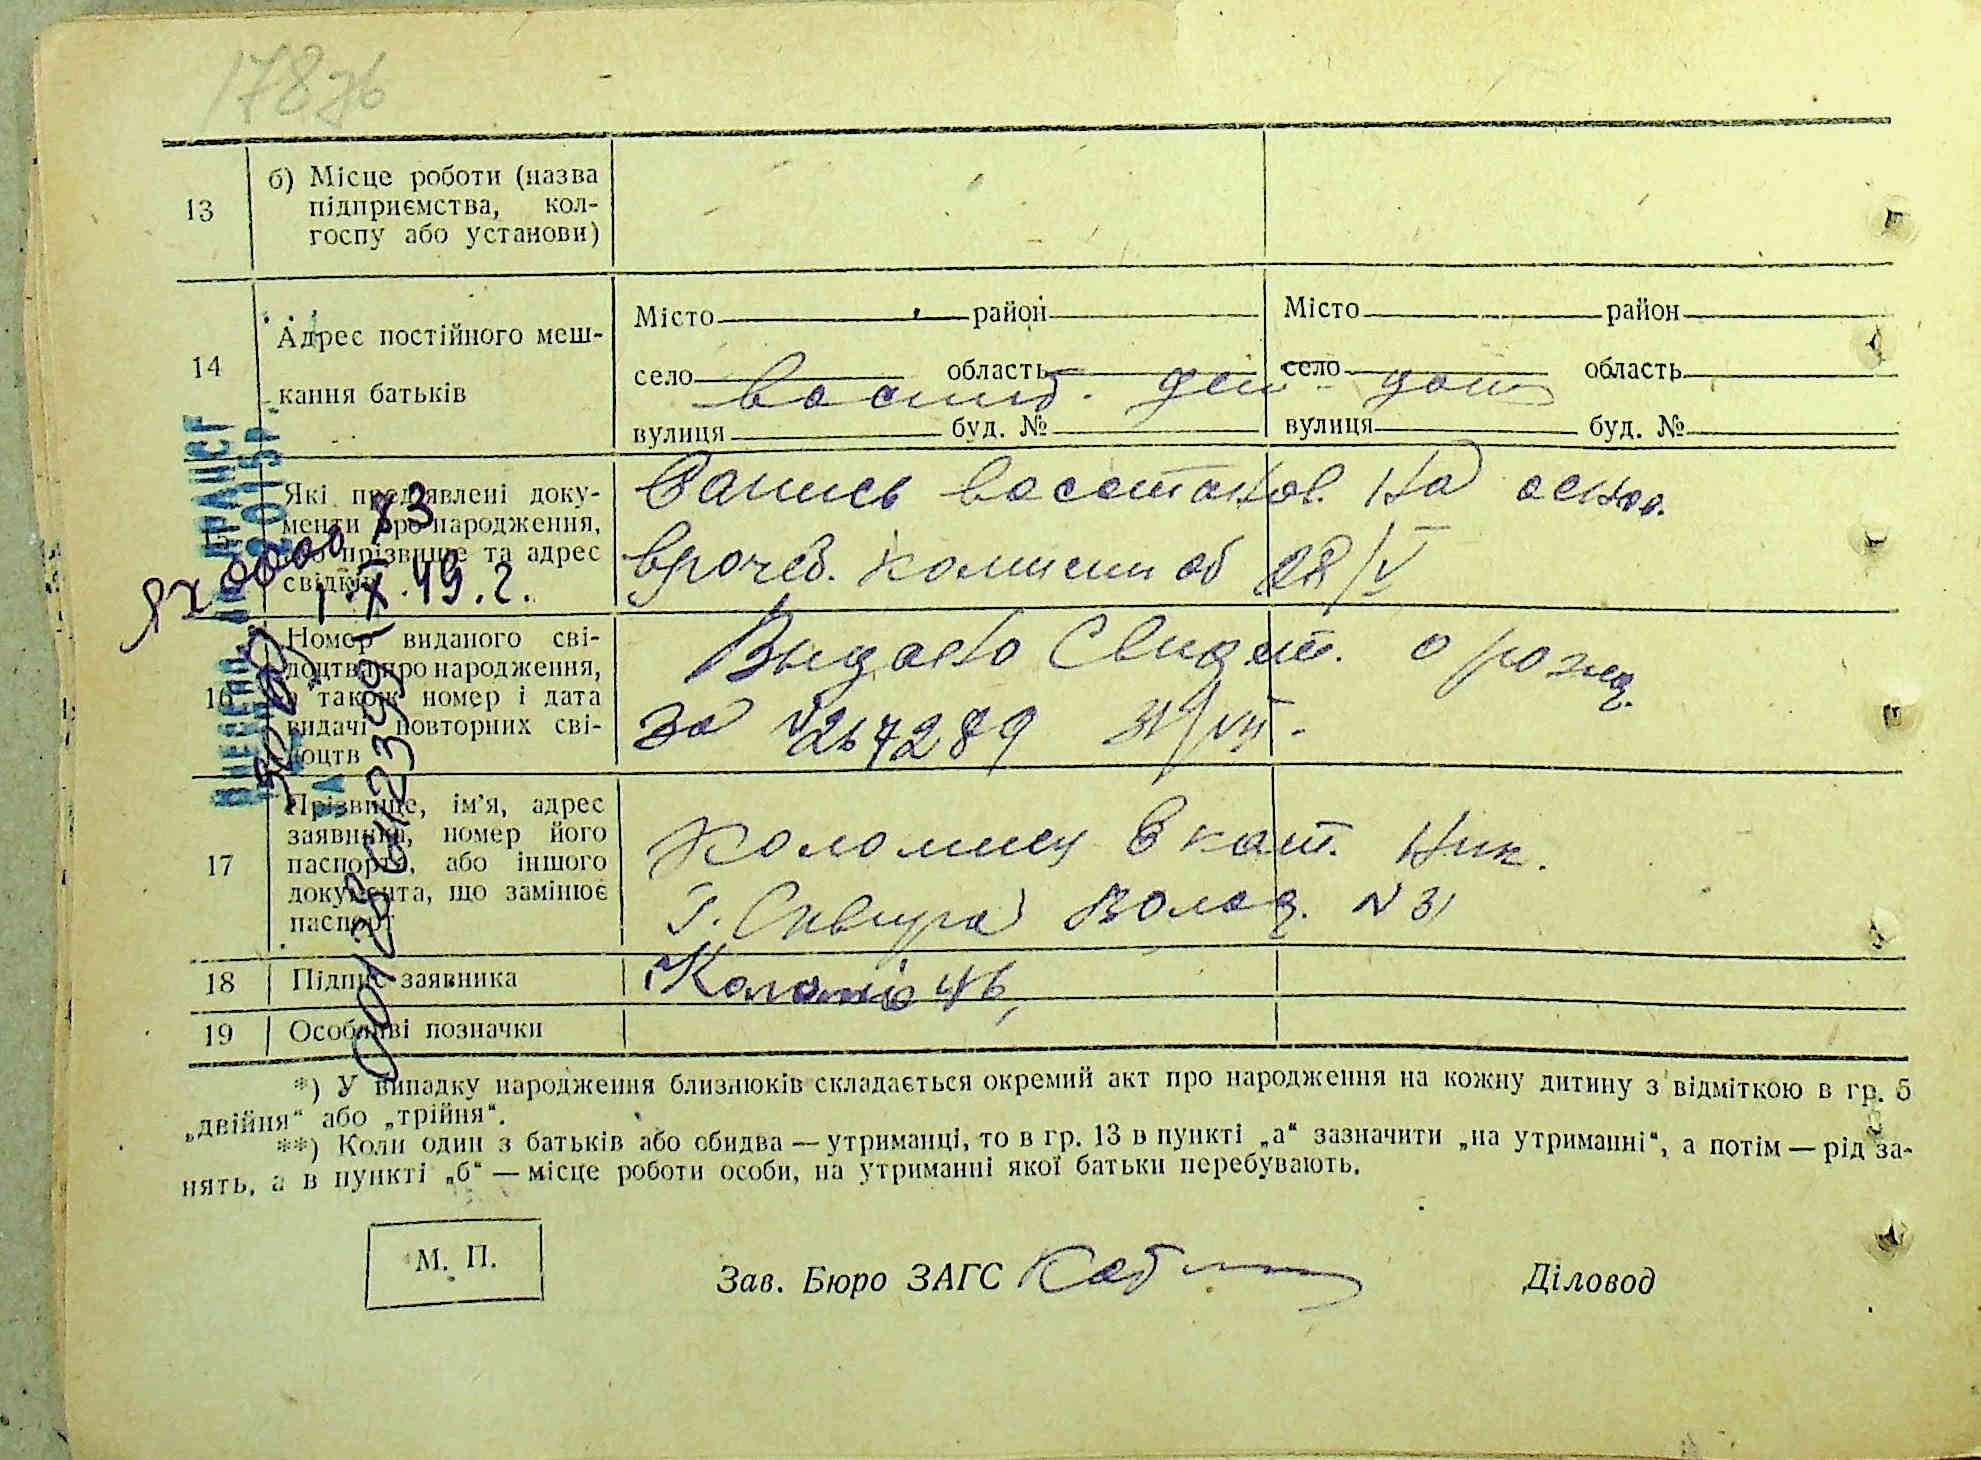 178зв
13
б) Місце роботи (назва
підприємства, кол-
госпу або установи)
14
Адрес постійного меш-
кання батьків
Місто район
село область
вулиця буд. №
Місто район
село область
вулиця буд. №
воспит. дет. дом
Які пред'явлені доку-
менти про народження,
прізвище та адрес
свідків
Запись восстановл. на основ.
врочеб. комисии об 28/V
16
Номер виданого сві-
доцтва про народження,
а також номер і дата
видачі повторних сві-
доцтв
Выдано Свидет. о рожд.
за № 264289 31/VII.
17
Прізвище, ім'я, адрес
заявника, номер його
паспорта, або іншого
документа, що замінює
паспорт
Коломиец Екат. Ник.
г. Сквира Волод. N 31
18
Підпис заявника
19
Особливі позначки
73
1.X.49.г.
*) У випадку народження близнюків складається окремий акт про народження на кожну дитину з відміткою в гр. 5
„двійня“ або „трійня“.
**) Коли один з батьків або обидва — утриманці, то в гр. 13 в пункті „а“ зазначити „на утриманні“, а потім — рід за-
нять, а в пункті „б“ — місце роботи особи, на утриманні якої батьки перебувають.
М. П.
Зав. Бюро ЗАГС
Діловод